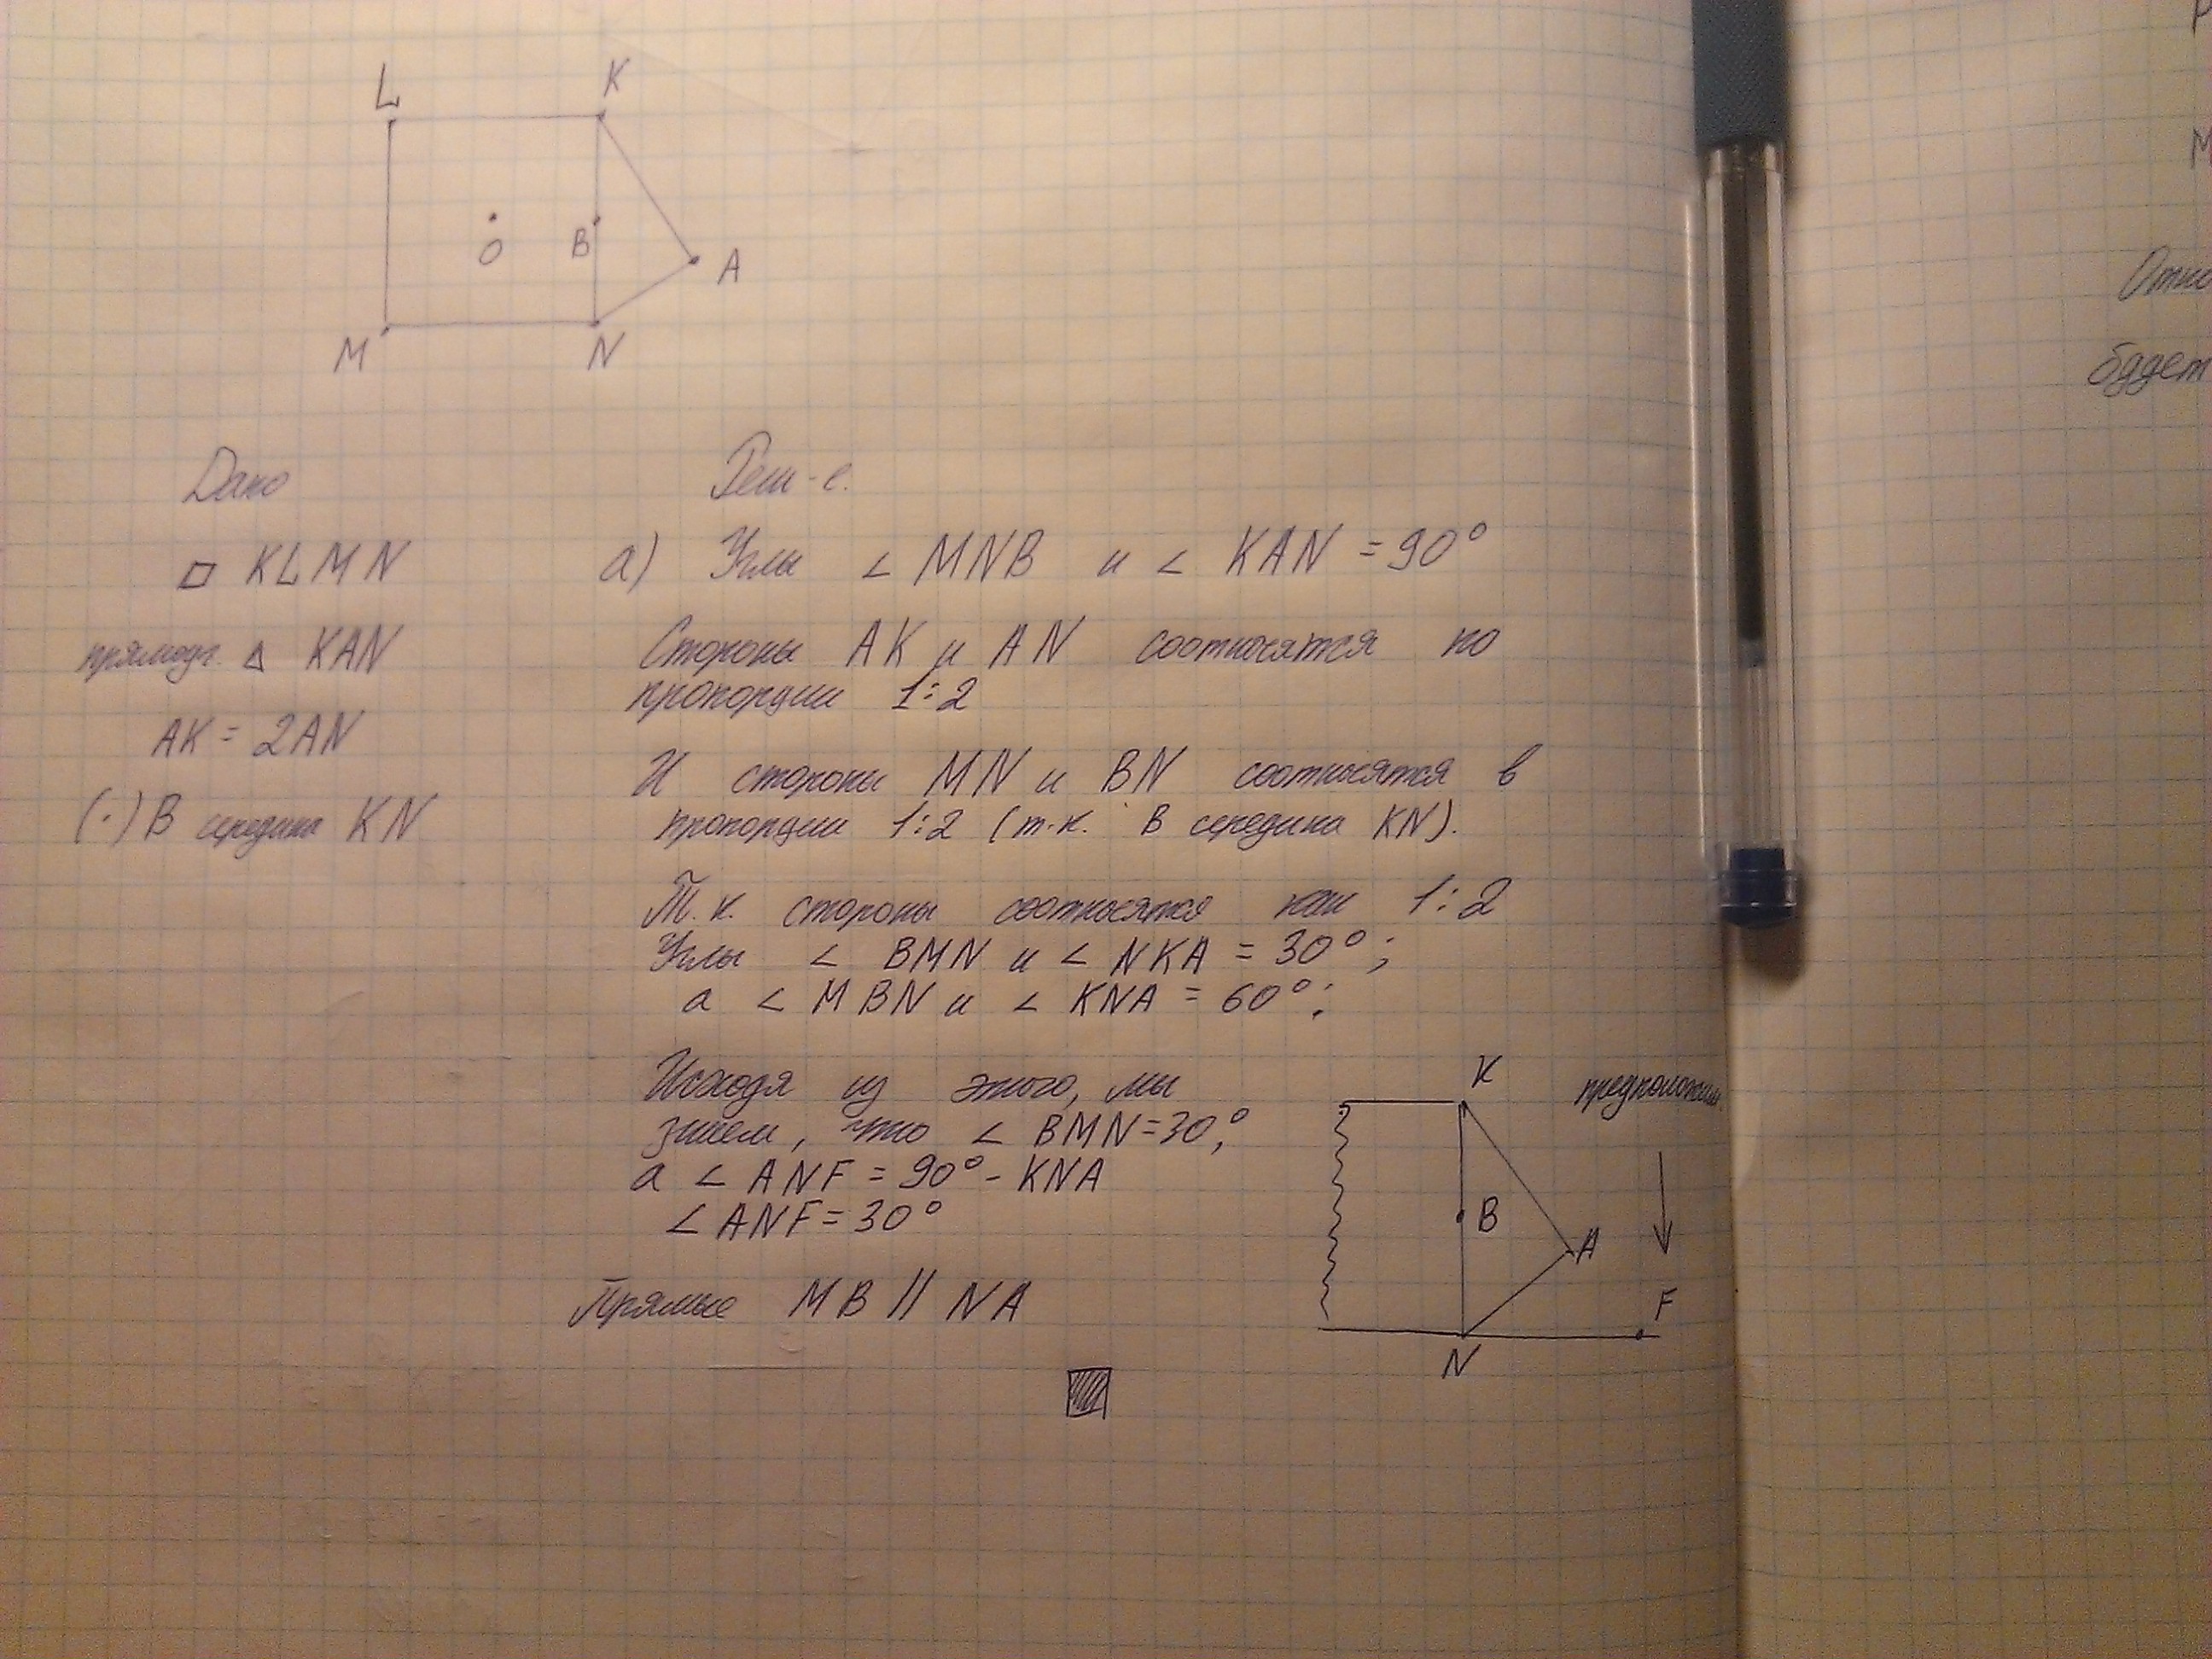 L K
O B A
M N
Дано
▱ KLMN
прямоуг. △ KAN
AK = 2AN
(·) B середина KN
Реш-е.
а) Углы ∠ MNB и ∠ KAN = 90°
Стороны AK и AN соотносятся по
пропорции 1:2
И стороны MN и BN соотносятся в
пропорции 1:2 (т.к. B середина KN).
Т.к. стороны соотносятся как 1:2
Углы ∠ BMN и ∠ NKA = 30°;
а ∠ MBN и ∠ KNA = 60°;
Исходя из этого, мы
знаем, что ∠ BMN=30°,
а ∠ ANF = 90° - KNA
∠ ANF = 30°
Прямые MB || NA
K
B
A
F
N
P
M
Отно
бддет